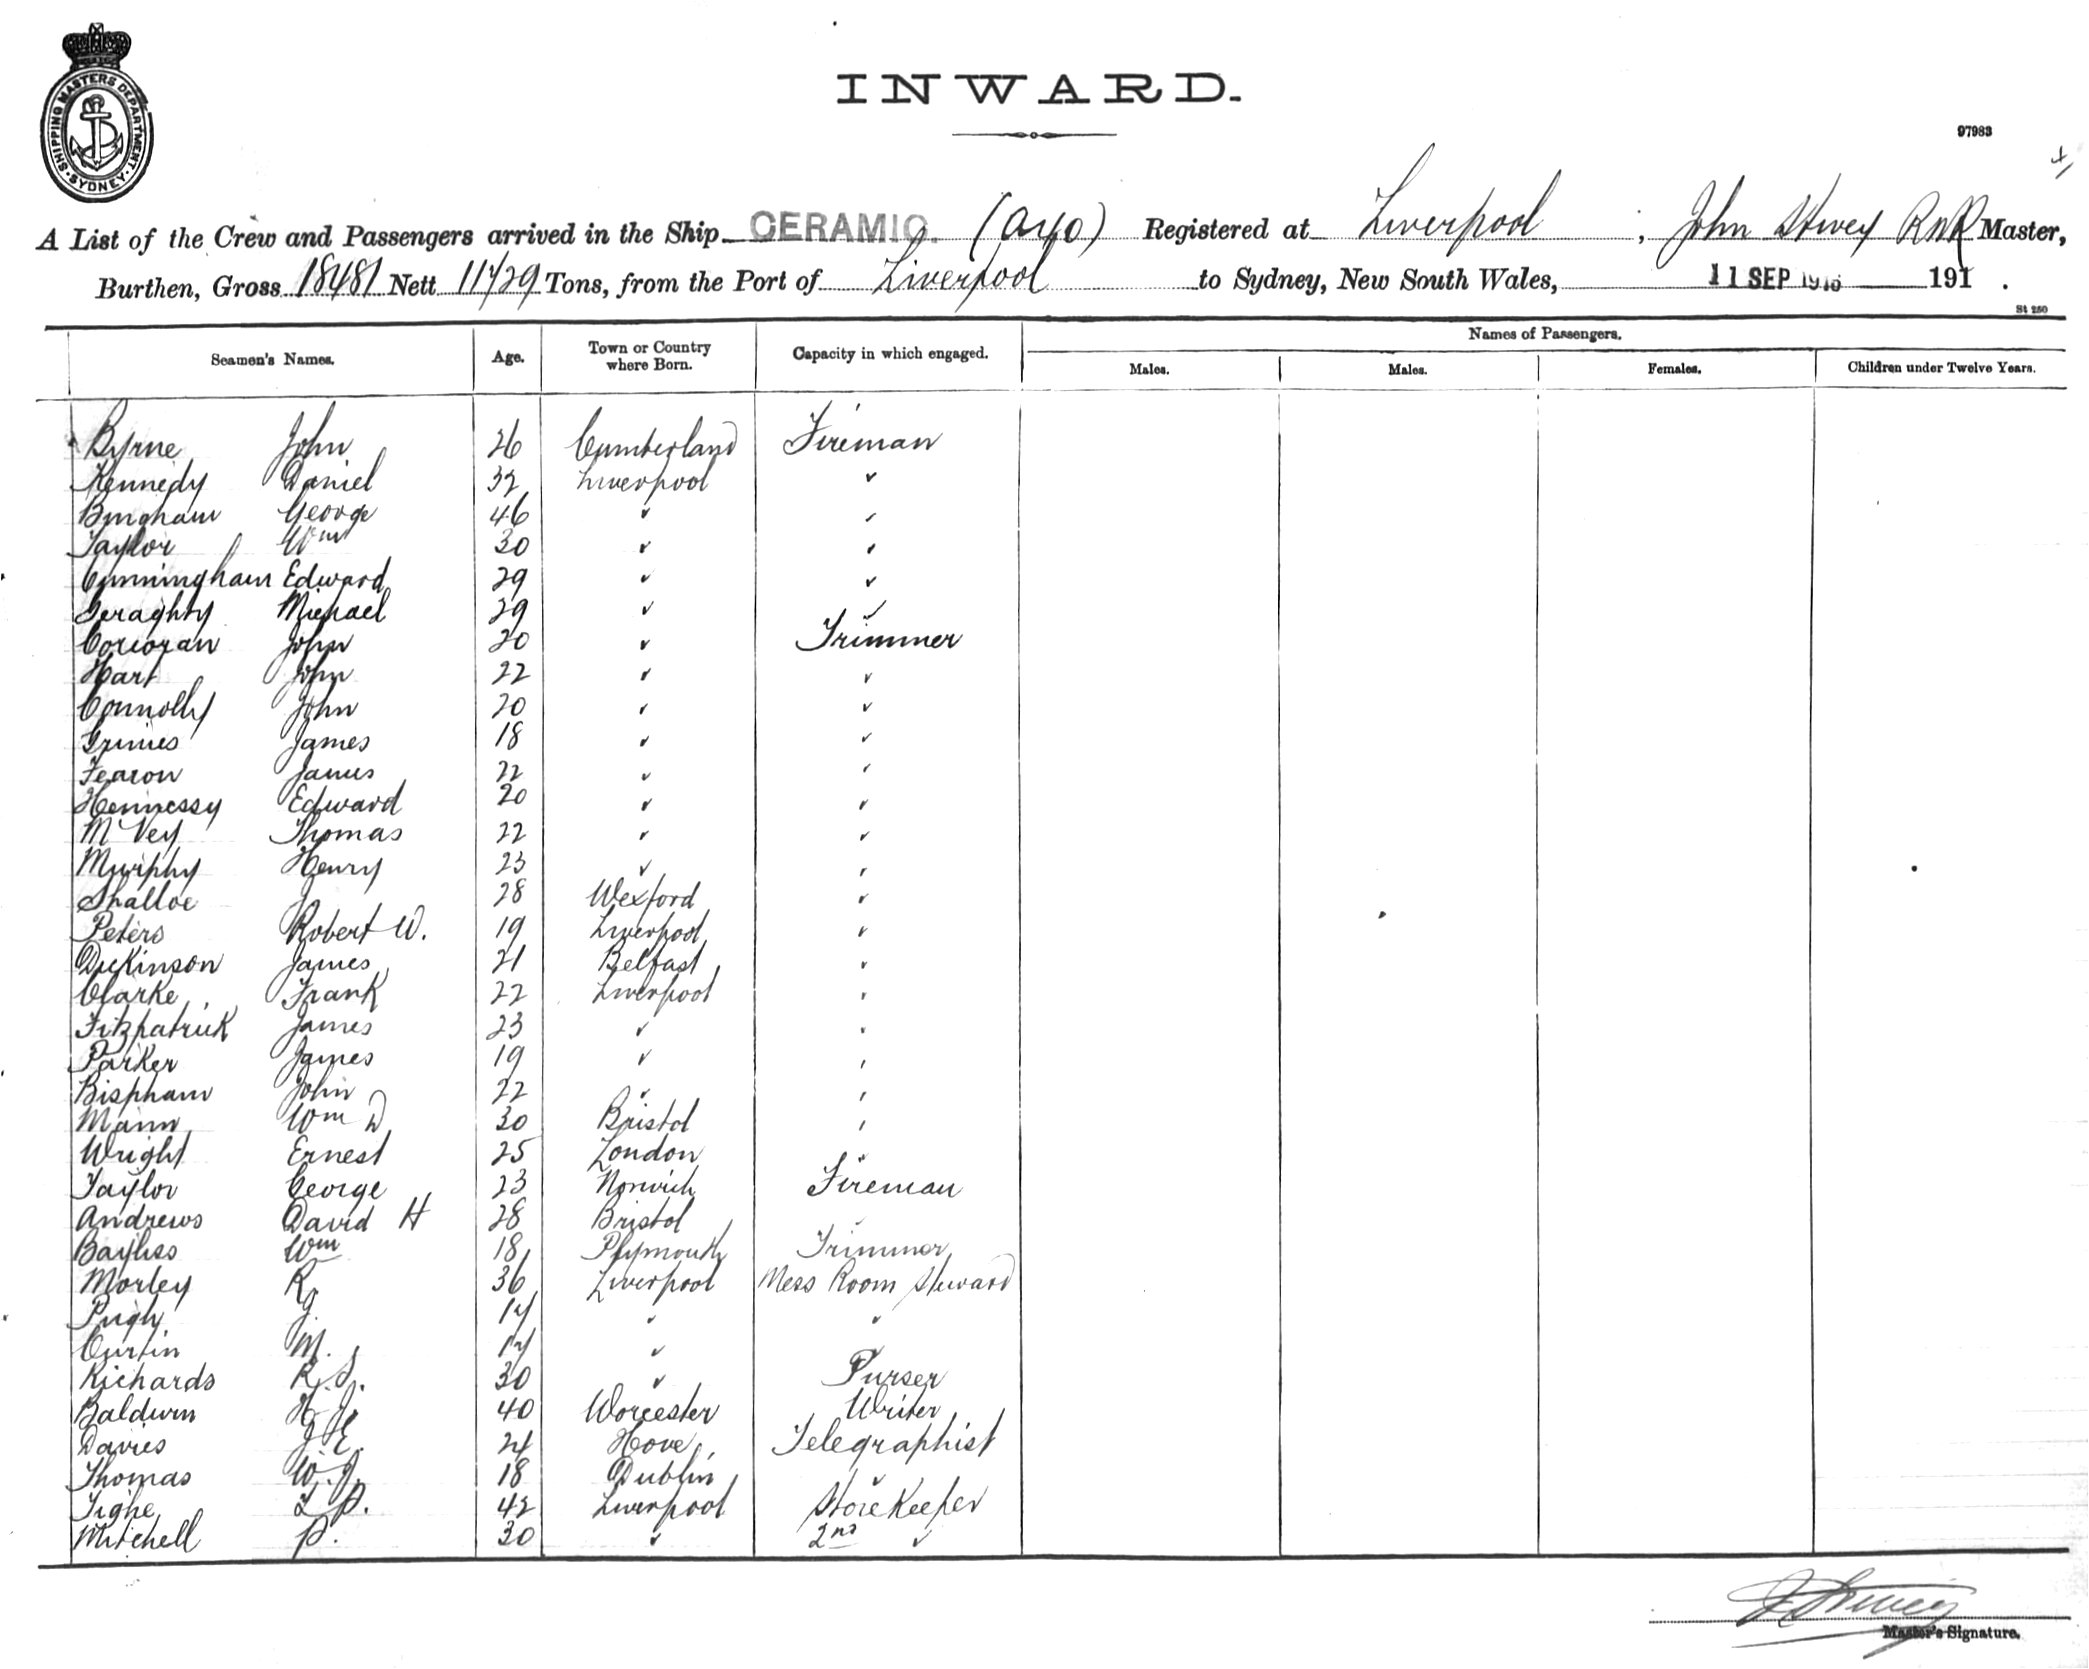 SHIPPING MASTERS DEPARTMENT. SYDNEY.
INWARD.
97983
A List of the Crew and Passengers arrived in the Ship CERAMIC. (A40) Registered at Liverpool ; John Stivey RNR Master,
Burthen, Gross 18481 Nett 11729 Tons, from the Port of Liverpool to Sydney, New South Wales, 11 SEP 191 .
St 250
Seamen's Names. Age. Town or Country where Born. Capacity in which engaged. Names of Passengers.
Males. Males. Females. Children under Twelve Years.
Byrne John 26 Cumberland Fireman
Kennedy Daniel 32 Liverpool "
Bingham George 46 " "
Taylor Wm 30 " "
Cunningham Edward 29 " "
Geraghty Michael 29 " "
Corcoran John 20 " Trimmer
Hart John 22 " "
Connolly John 20 " "
Grimes James 18 " "
Fearon James 22 " "
Hennessy Edward 20 " "
McVey Thomas 22 " "
Murphy Henry 23 " "
Shalloe J 28 Wexford "
Peters Robert W. 19 Liverpool "
Dickinson James 21 Belfast "
Clarke Frank 22 Liverpool "
Fitzpatrick James 23 " "
Parker James 19 " "
Bispham John 22 " "
Mann Wm D 30 Bristol "
Wright Ernest 25 London "
Taylor George 23 Norwich Fireman
Andrews David H 28 Bristol "
Bayliss Wm 18 Plymouth Trimmer
Morley R 36 Liverpool Mess Room Steward
Pugh J. 17 " "
Curtin M. 17 " "
Richards R. 30 " Purser
Baldwin H. J. 40 Worcester Writer
Davies J. E. 24 Hove Telegraphist
Thomas W. J. 18 Dublin "
Tighe T P. 42 Liverpool Store Keeper
Mitchell P. 30 " 2nd "
J Stivey
Master's Signature.